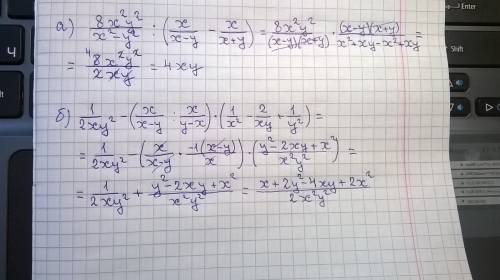 а) 8x²y²/(x²-y²) : (x/(x-y) - x/(x+y)) = 8x²y²/((x-y)(x+y)) · (x-y)(x+y)/(x²+xy-x²+xy) =
= 8x²y²/2xy = 4xy
б) 1/2xy² - (x/(x-y) : x/(y-x)) · (1/x² - 2/xy + 1/y²) =
= 1/2xy² - (x/(x-y) · -1(x-y)/x) · ((y²-2xy+x²)/x²y²) =
= 1/2xy² + (y²-2xy+x²)/x²y² = (x+2y²-4xy+2x²)/2x²y²